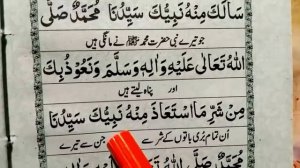 سَأَلَكَ مِنْهُ نَبِيُّكَ سَيِّدُنَا مُحَمَّدٌ صَلَّى
جو تیرے نبی حضرت محمد ﷺ نے مانگی ہیں
اللهُ تَعَالٰى عَلَيْهِ وَاٰلِهٖ وَسَلَّمَ وَنَعُوْذُ بِكَ
اور پناہ لیتے ہیں
مِنْ شَرِّ مَا اسْتَعَاذَ مِنْهُ نَبِيُّكَ سَيِّدُنَا
اُن تمام بُری باتوں کے شر سے جن سے تیرے
مُحَمَّدٌ صَلَّى اللهُ تَعَالٰى عَلَيْهِ